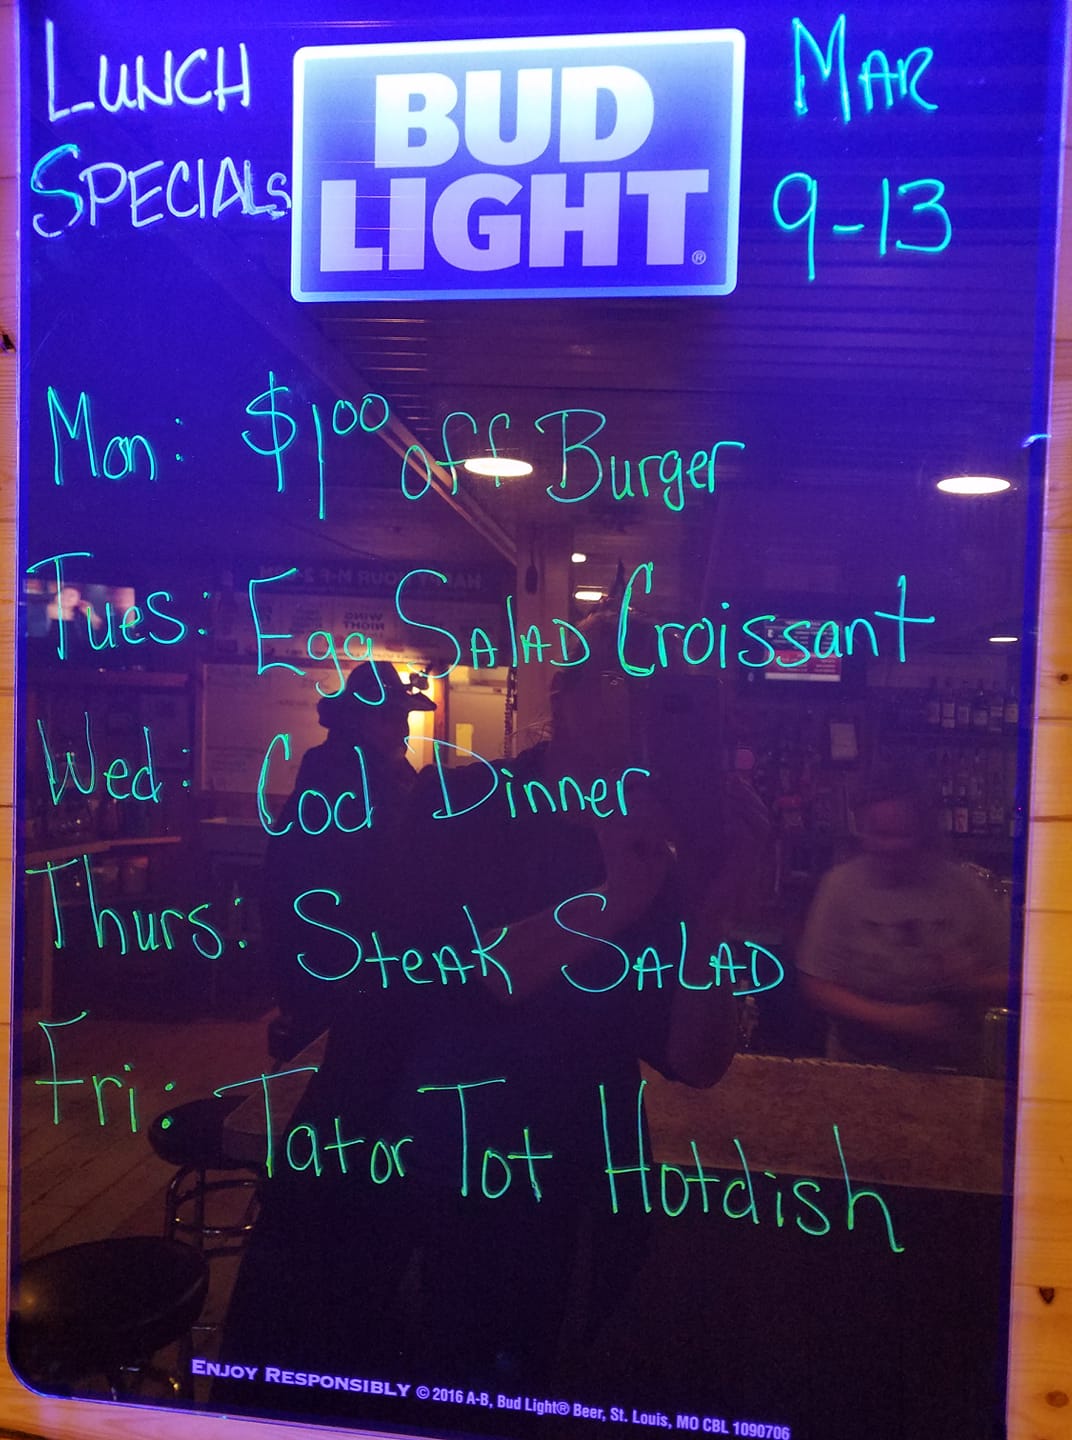 LUNCH
SPECIALS
BUD
LIGHT®
MAR
9-13
Mon: $1.00 off Burger
Tues: Egg SALAD Croissant
Wed: Cod Dinner
Thurs: SteAK SALAD
Fri: Tator Tot Hotdish
ENJOY RESPONSIBLY © 2016 A-B, Bud Light® Beer, St. Louis, MO CBL 1090706